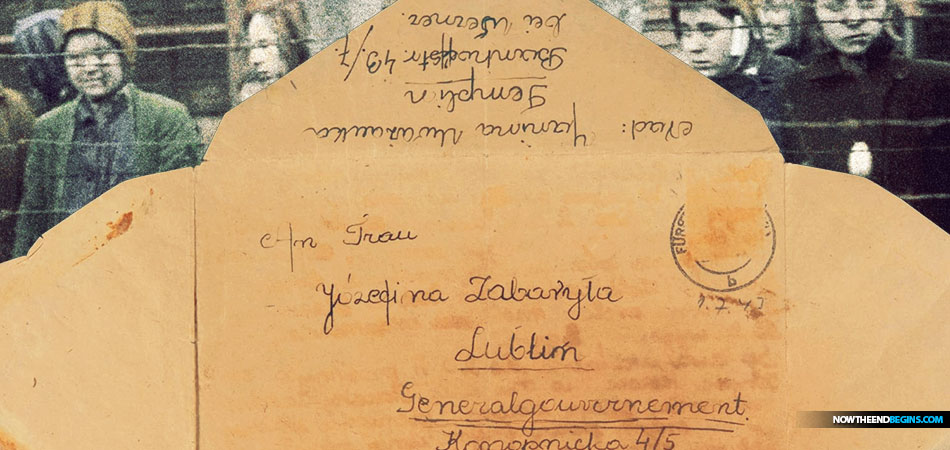 Nad: Janina
Templin
49/7
bei Werner.
Frau
Józefina Zabaryła
Lublin
Generalgouvernement
Konopnicka 4/5
FÜR
b
NOWTHEENDBEGINS.COM